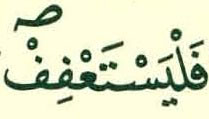 فَلْيَسْتَعْفِفْۖ